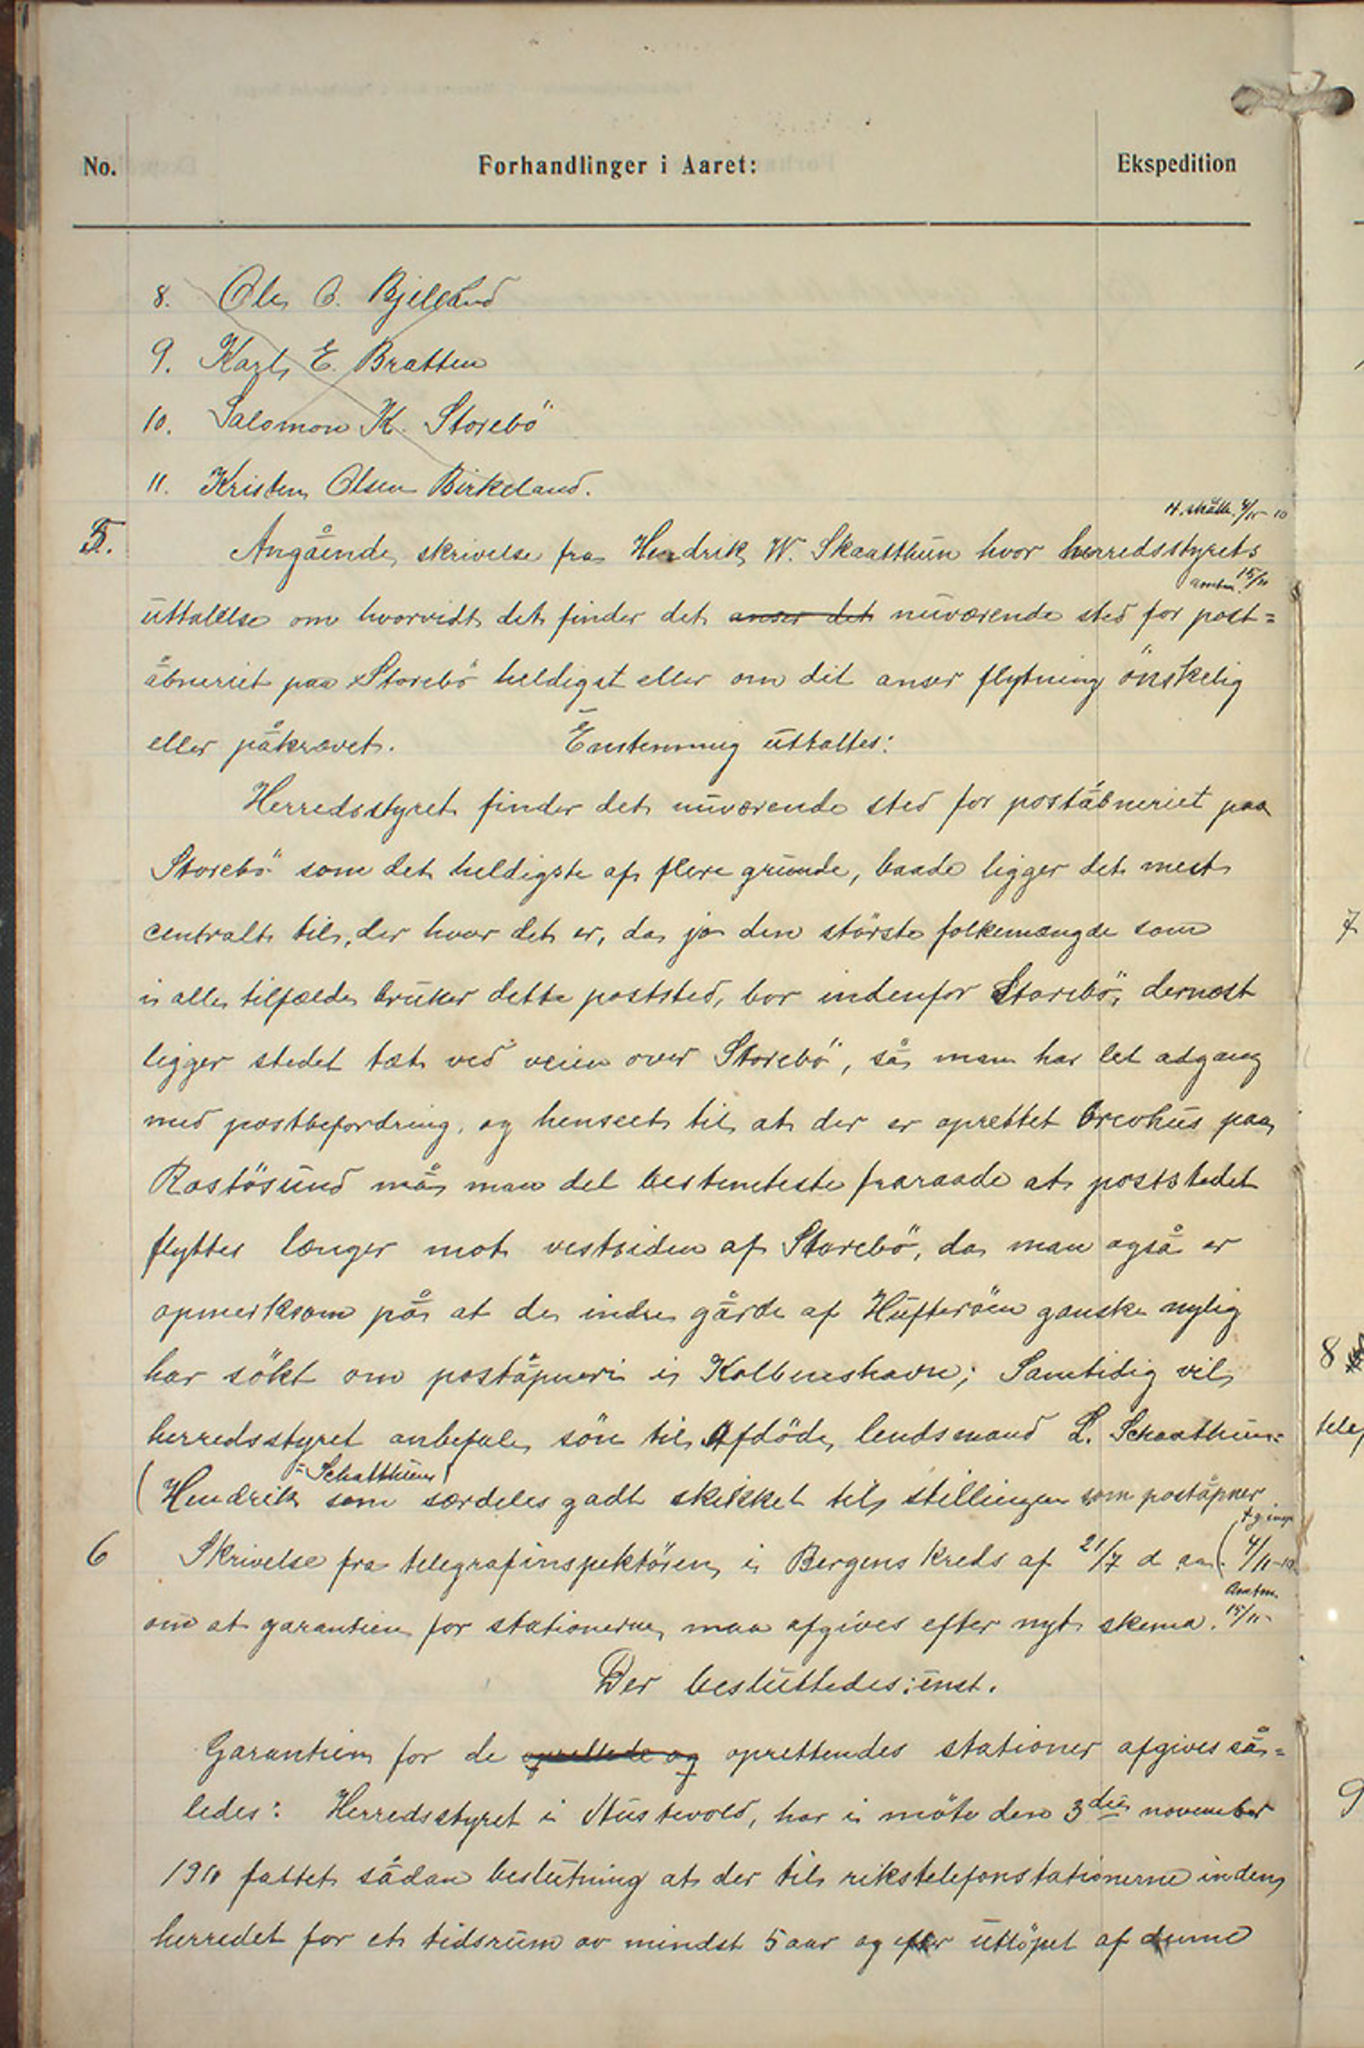 No. Forhandlinger i Aaret: Ekspedition
8. Ole O. Bjelland
9. Karl E. Bratten
10. Salomon K. Storebö
11. Kristen Olsen Birkeland.
4/11-10
5. Angående skrivelse fra Hendrik W. Skaatthun hvor herredsstyrets
amtm. 15/11
uttalelse om hvorvidt det finder det anser det nuværende sted for post=
åbneriet paa Storebö heldigst eller om det anser flytning önskelig
eller påkrævet. Enstemmig uttaltes:
Herredsstyret finder det nuværende sted for poståbneriet paa
Storebö som det heldigste af flere grunde, baade ligger det mest
centralt til, der hvor det er, da jo den störste folkemængde som
i alle tilfælde bruker dette poststed, bor indenfor Storebö, dernæst
ligger stedet tæt ved veien over Storebö, så man har let adgang
med postbefordring, og henseet til at der er oprettet brevhus paa
Rostösund må man det bestemteste fraraade at poststedet
flyttes længer mot vestsiden af Storebö, da man også er
opmerksom på at de indre gårde af Hufteröen ganske nylig
har sökt om poståpneri i Kolbenshavn; Samtidig vil
herredsstyret anbefale sön til Afdöde lendsmand L. Schaathun=
= Schatthun
(Hendrik som særdeles godt skikket til stillingen som poståpner
6 Skrivelse fra telegrafinspektören i Bergens kreds af 21/7 d. aa. (4/11-10
Amtm.
om at garantien for stationerne maa afgives efter nyt skema. 15/11-
Der besluttedes: enst.
Garantien for de oprettede og oprettendes stationer afgives så=
ledes: Herredsstyret i Austevold, har i möte den 3die november
1910 fattet sådan beslutning at der til rikstelefonstationerne inden
herredet for et tidsrum av mindst 5 aar og efter utlöpet af denne
7
8
telef
9